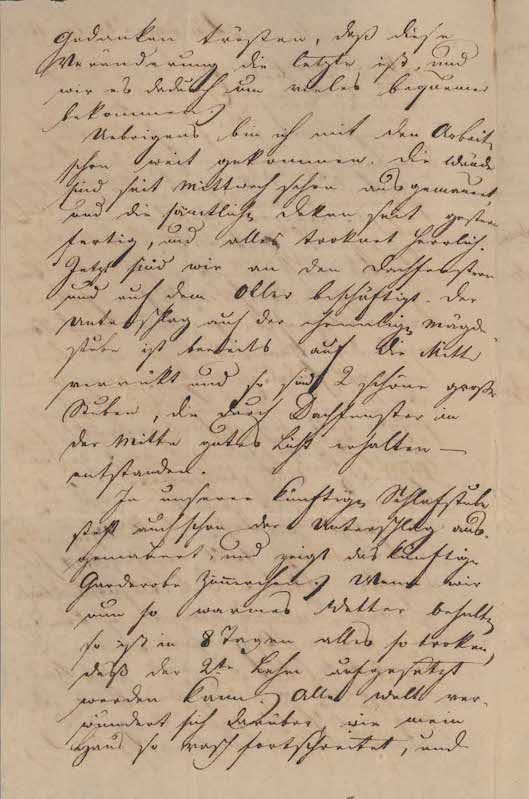 Gedanken trösten, daß diese
Veränderung die letzte ist, und
wir es dadurch um vieles bequemer
bekommen.
Uebrigens bin ich mit den Arbeit
schon weit gekommen. Die Wände
sind seit Mittwoch schon ausgemauert
und die sämtlichen Deken seit gestern
fertig, und alles troknet herrlich.
Jetzt sind wir an den Dachfenstern
und auf dem Oller beschäftigt. Der
Unterschlag auf der ehemaligen Mägde
stube ist bereits auf die Mitte
verrükt und so sind 2 schöne große
Stuben, die durch Dachfenster in
der Mitte gutes Licht erhalten —
entstanden.
In unserer künftigen Schlafstube
steht auch schon der Unterschlag aus-
gemauert, und zeigt das künftige
Garderobe Zimmerchen. Wenn wir
nun so warmes Wetter behalten
so ist in 8 Tagen alles so troken,
daß der 2te Lehm aufgesetzt
werden kann. Alle Welt ver-
wundert sich darüber, wie mein
Haus so rasch fortschreitet, und